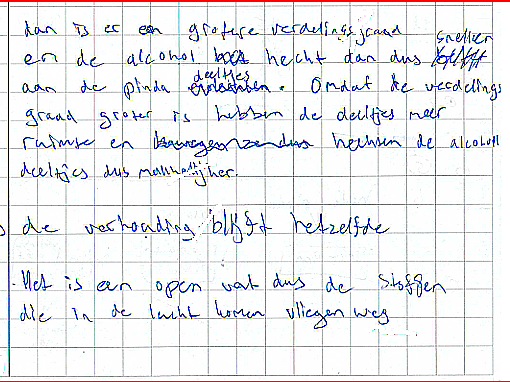 dan is er een grotere verdelingsgraad
en de alcohol hecht dan dus sneller
aan de pinda deeltjes. Omdat de verdelings
graad groter is hebben de deeltjes meer
ruimte en hechten de alcohol
deeltjes dus makkelijker.
de verhouding blijft hetzelfde
Het is een open vat dus de stoffen
die in de lucht komen vliegen weg